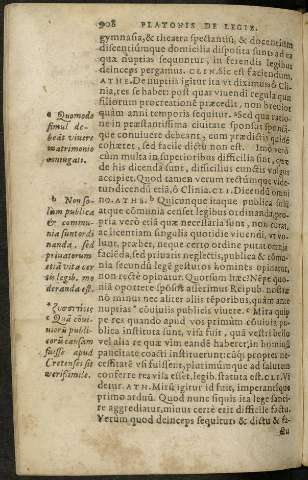 908 PLATONIS DE LEGIB.
gymnasia, & theatra spectantiū, & docentium
discentiumque domicilia disposita sunt: ad ea
quæ nuptias sequuntur, in ferendis legibus
deinceps pergamus. CLIN. Sic est faciendum.
ATH. De nuptiis igitur ita vt diximus ô Cli-
nia, res se habet: post quas viuendi regula que
filiorum procreationē præcedit, non breuior
quàm anni temporis sequitur. Sed qua ratio-
ne in præstantissima ciuitate sponsus sponsá-
que conuiuere debeant, cum prædictis quidē
cohæret, sed facile dictu non est.
cùm multa in superioribus difficilia sint, quæ
de his dicenda sunt, difficilius
accipiet. Quod tamen verum rectúmque vide-
tur: dicendū etiā, ô Clinia. CLI. Dicendū omni
no. ATH. b Quicunque itaque publica solùm
atque cōmunia censet legibus ordinanda, pro-
pria verò etiā quæ necessaria sunt, non curat,
ac licentiam singulis quotidie viuendi, vt vo-
lunt, præbet, neque certo ordine putat omnia
facienda, sed priuatis neglectis, publica & cōmu
nia secundū legē gesturos homines opinatur,
non rectè opinatur. Quorsum hæc? Népe quo-
niā oportere sponsos asseruimus Reipub. nostræ
nō minus nec aliter ollis tēporibus, quàm ante
nuptias c cōuiuiis publicis viuere. Mira quip
pe res quando apud vos primùm cōuiuia pu-
blica instituta sunt, visa fuit, quæ vestri bello
vel alia re quæ vim eandē haberet, in hominū
paucitate coacti instituerunt: cùq; propter ne-
cessitatē vsi fuissent, plurimúmque ad salutem
conferre res visa esset, legib. statuta est. CLI. Vi
detur. ATH. Mirū igitur id fuit, imperantique
primo arduū. Quod nunc siquis ita lege sanci-
re aggrediatur, minus certè erit difficile factu.
Verum quod deinceps sequitur: & dictu & fa-
ctu
a Quomodo
simul de-
beāt viuere
matrimonio
coniugati.
b Non so-
lùm publica
& commu-
nia sunt ordi
nanda, sed
priuatorum
etiā vita cer
ta lege mo
deranda est.
Quòd cōui-
uiorū publi-
corū causam
fuisse apud
Cretenses sit
verisimile.